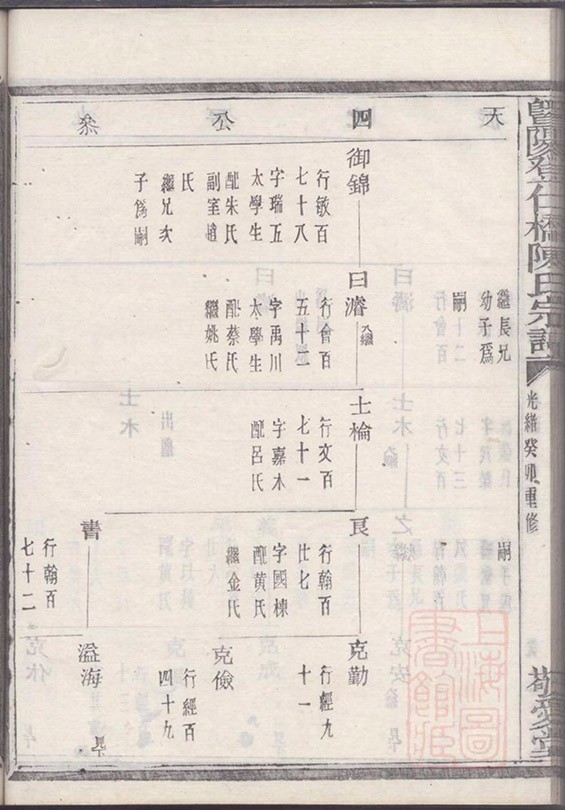 暨陽登仁橋陳氏宗譜
光緒癸卯重修
敬愛堂
天
四
公
忝
繼長兄
幼子爲
嗣
御錦
行敏百
七十八
字瑞五
太學生
配朱氏
副室趙
氏
繼兄次
子爲嗣
曰濬
入繼
行會百
五十三
字禹川
太學生
配蔡氏
繼姚氏
士棆
行文百
七十一
字嘉木
配呂氏
良
行翰百
廿七
字國棟
配黄氏
繼金氏
克勤
行經九
十一
克儉
行經百
四十九
書
行翰百
七十二
溢海
上海圖
書館藏